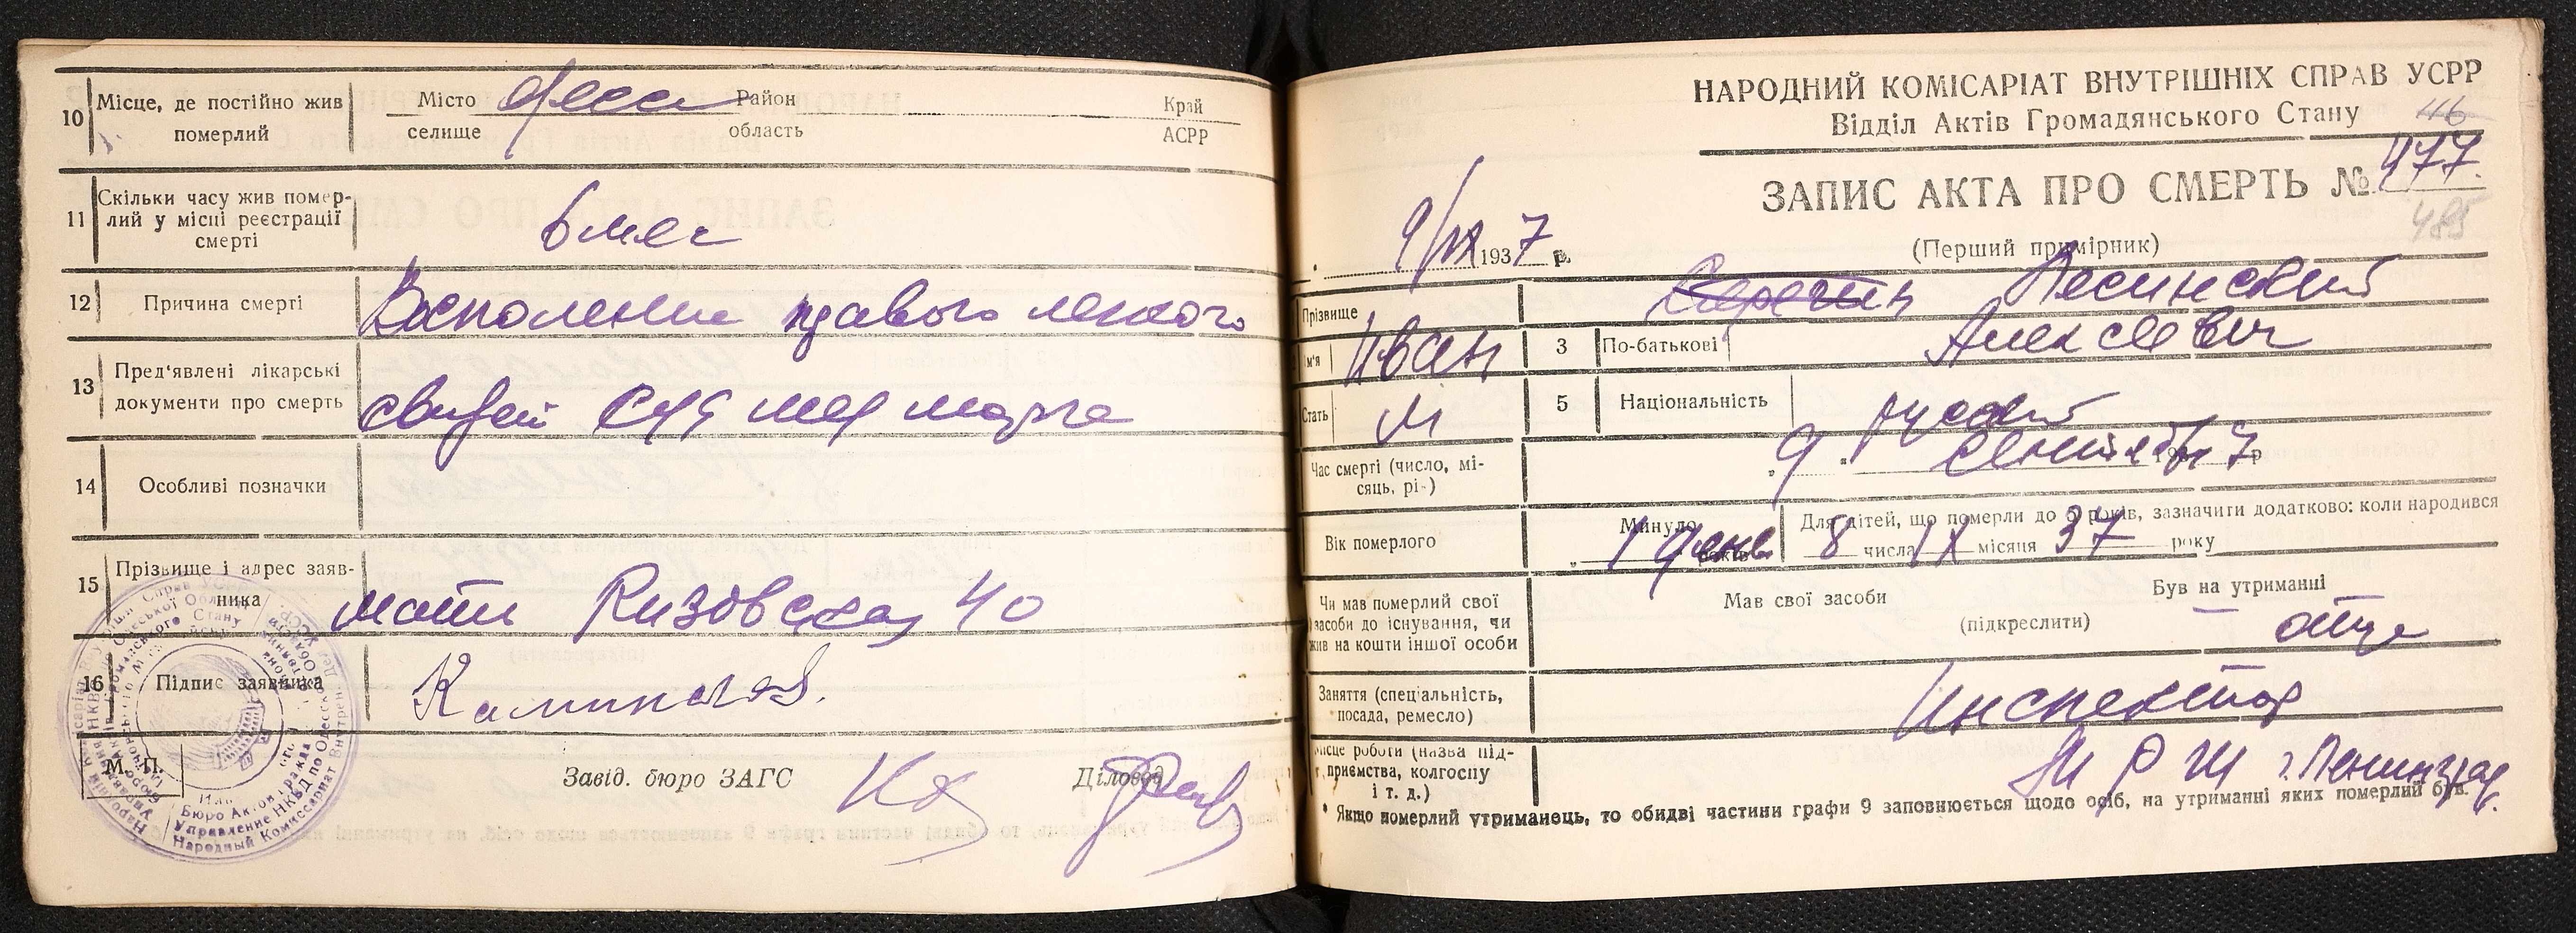 10 Місце, де постійно жив померлий
Місто Одесса Район Край
селище область АСРР
11 Скільки часу жив помер-
лий у місці реєстрації
смерті
6 мес
12 Причина смерті Воспаление правого легкого
13 Пред'явлені лікарські
документи про смерть
свидет мед морга
14 Особливі позначки
15 Прізвище і адрес заяв-
ника
мать Ризовская 40
16 Підпис заявника
М. П.
Завід. бюро ЗАГС Діловод
НАРОДНИЙ КОМІСАРІАТ ВНУТРІШНІХ СПРАВ УСРР
Відділ Актів Громадянського Стану
116
ЗАПИС АКТА ПРО СМЕРТЬ № 477.
485
(Перший примірник)
9/IX 1937 р.
Прізвище Лесинский
Ім'я Иван 3 По-батькові Алексеевич
Стать М 5 Національність русский
Час смерті (число, мі-
сяць, рі-)
„ 9 " Сентября 1937 р
Вік померлого
Минуло
„ 1 день років
Для дітей, що померли до 5 років, зазначити додатково: коли народився
8 числа IX місяця 37 року
Чи мав померлий свої
засоби до існування, чи
жив на кошти іншої особи
Мав свої засоби Був на утриманні
(підкреслити) отца
Заняття (спеціальність,
посада, ремесло)
Инспектор
Місце роботи (назва під-
приємства, колгоспу
і т. д.)
г. Ленинград
* Якщо померлий утриманець, то обидві частини графи 9 заповнюється щодо осіб, на утриманні яких померлий був.